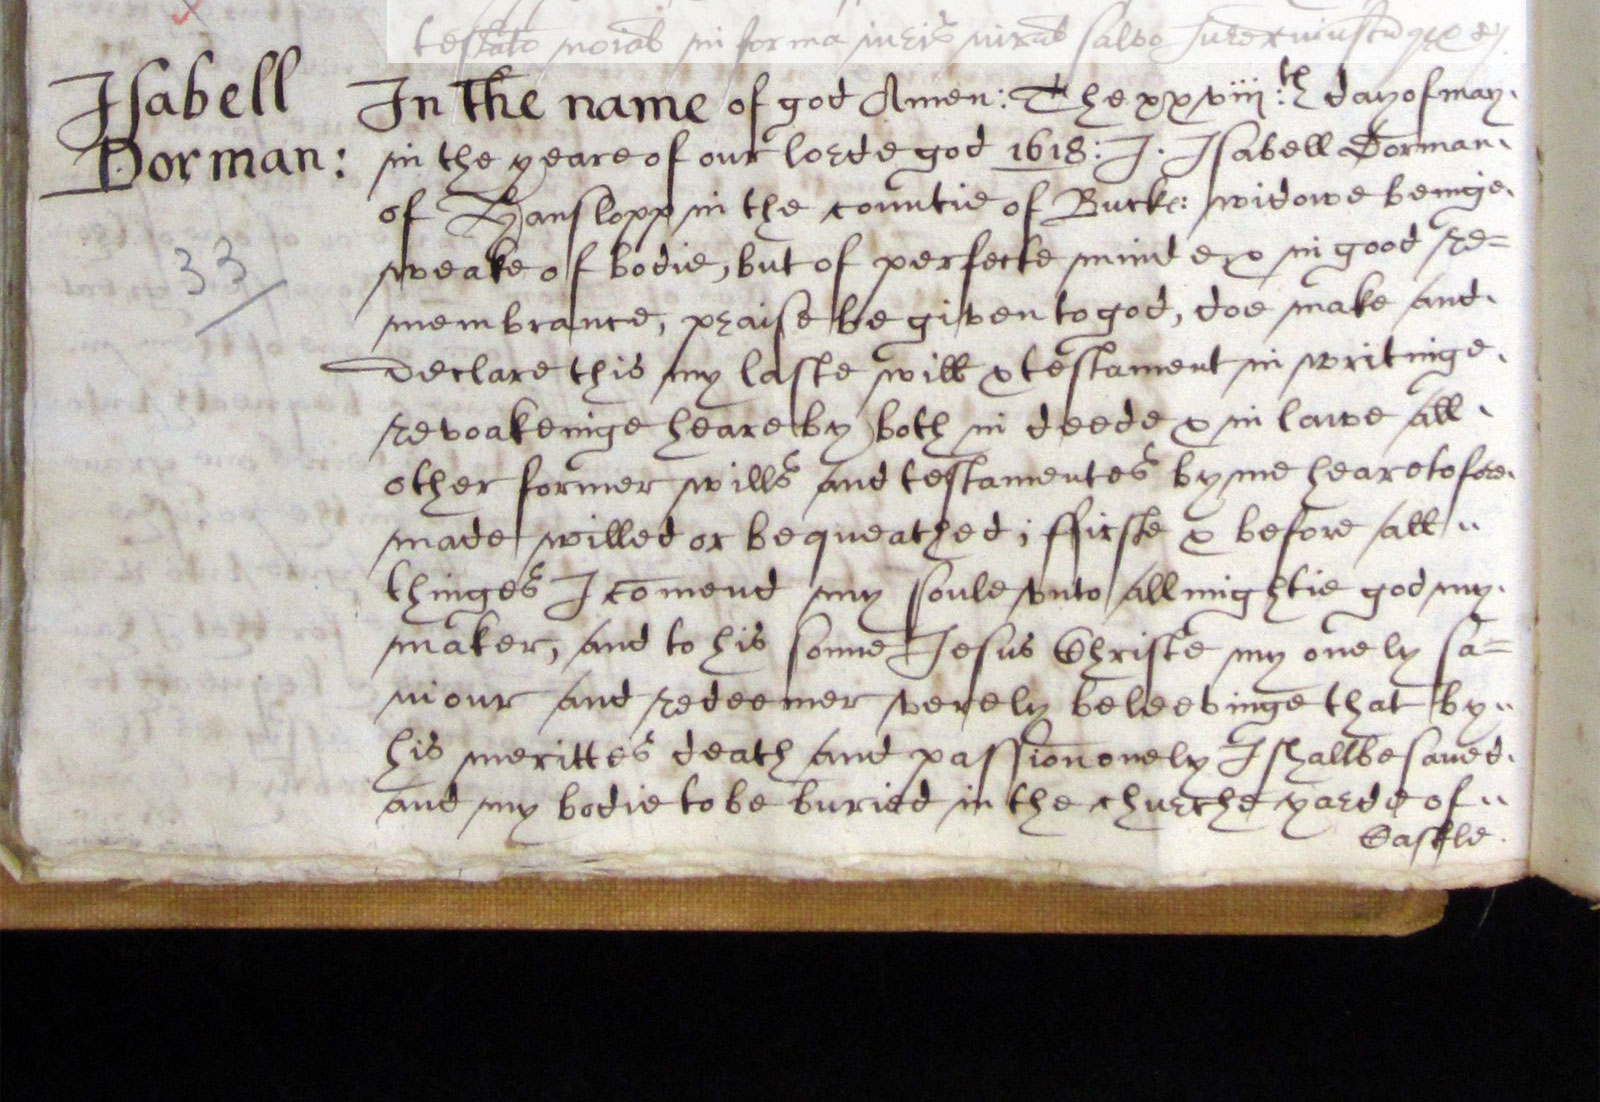 Isabell
Dorman:
33
In the name of god Amen: The xxviii:th day of may
in the yeare of our lorde god 1618: I. Isabell Dorman
of Hanslopp in the countie of Buck: widowe beinge
weake of bodie, but of perfecte minde & in good re=
membrance, praise be given to god, doe make and
declare this my laste will & testament in writinge
revoakeinge heareby both in deede & in lawe all
other former wills and testamentes by me hearetofore
made willed or bequeathed; ffirste & before all
thinges I comend my soule vnto allmightie god my
maker, and to his sonne Jesus Christe my onely sa=
uiour and redeemer verely beleevinge that by
his merittes death and passion onely I shall be saued
and my bodie to be buried in the churche yarde of
Castle